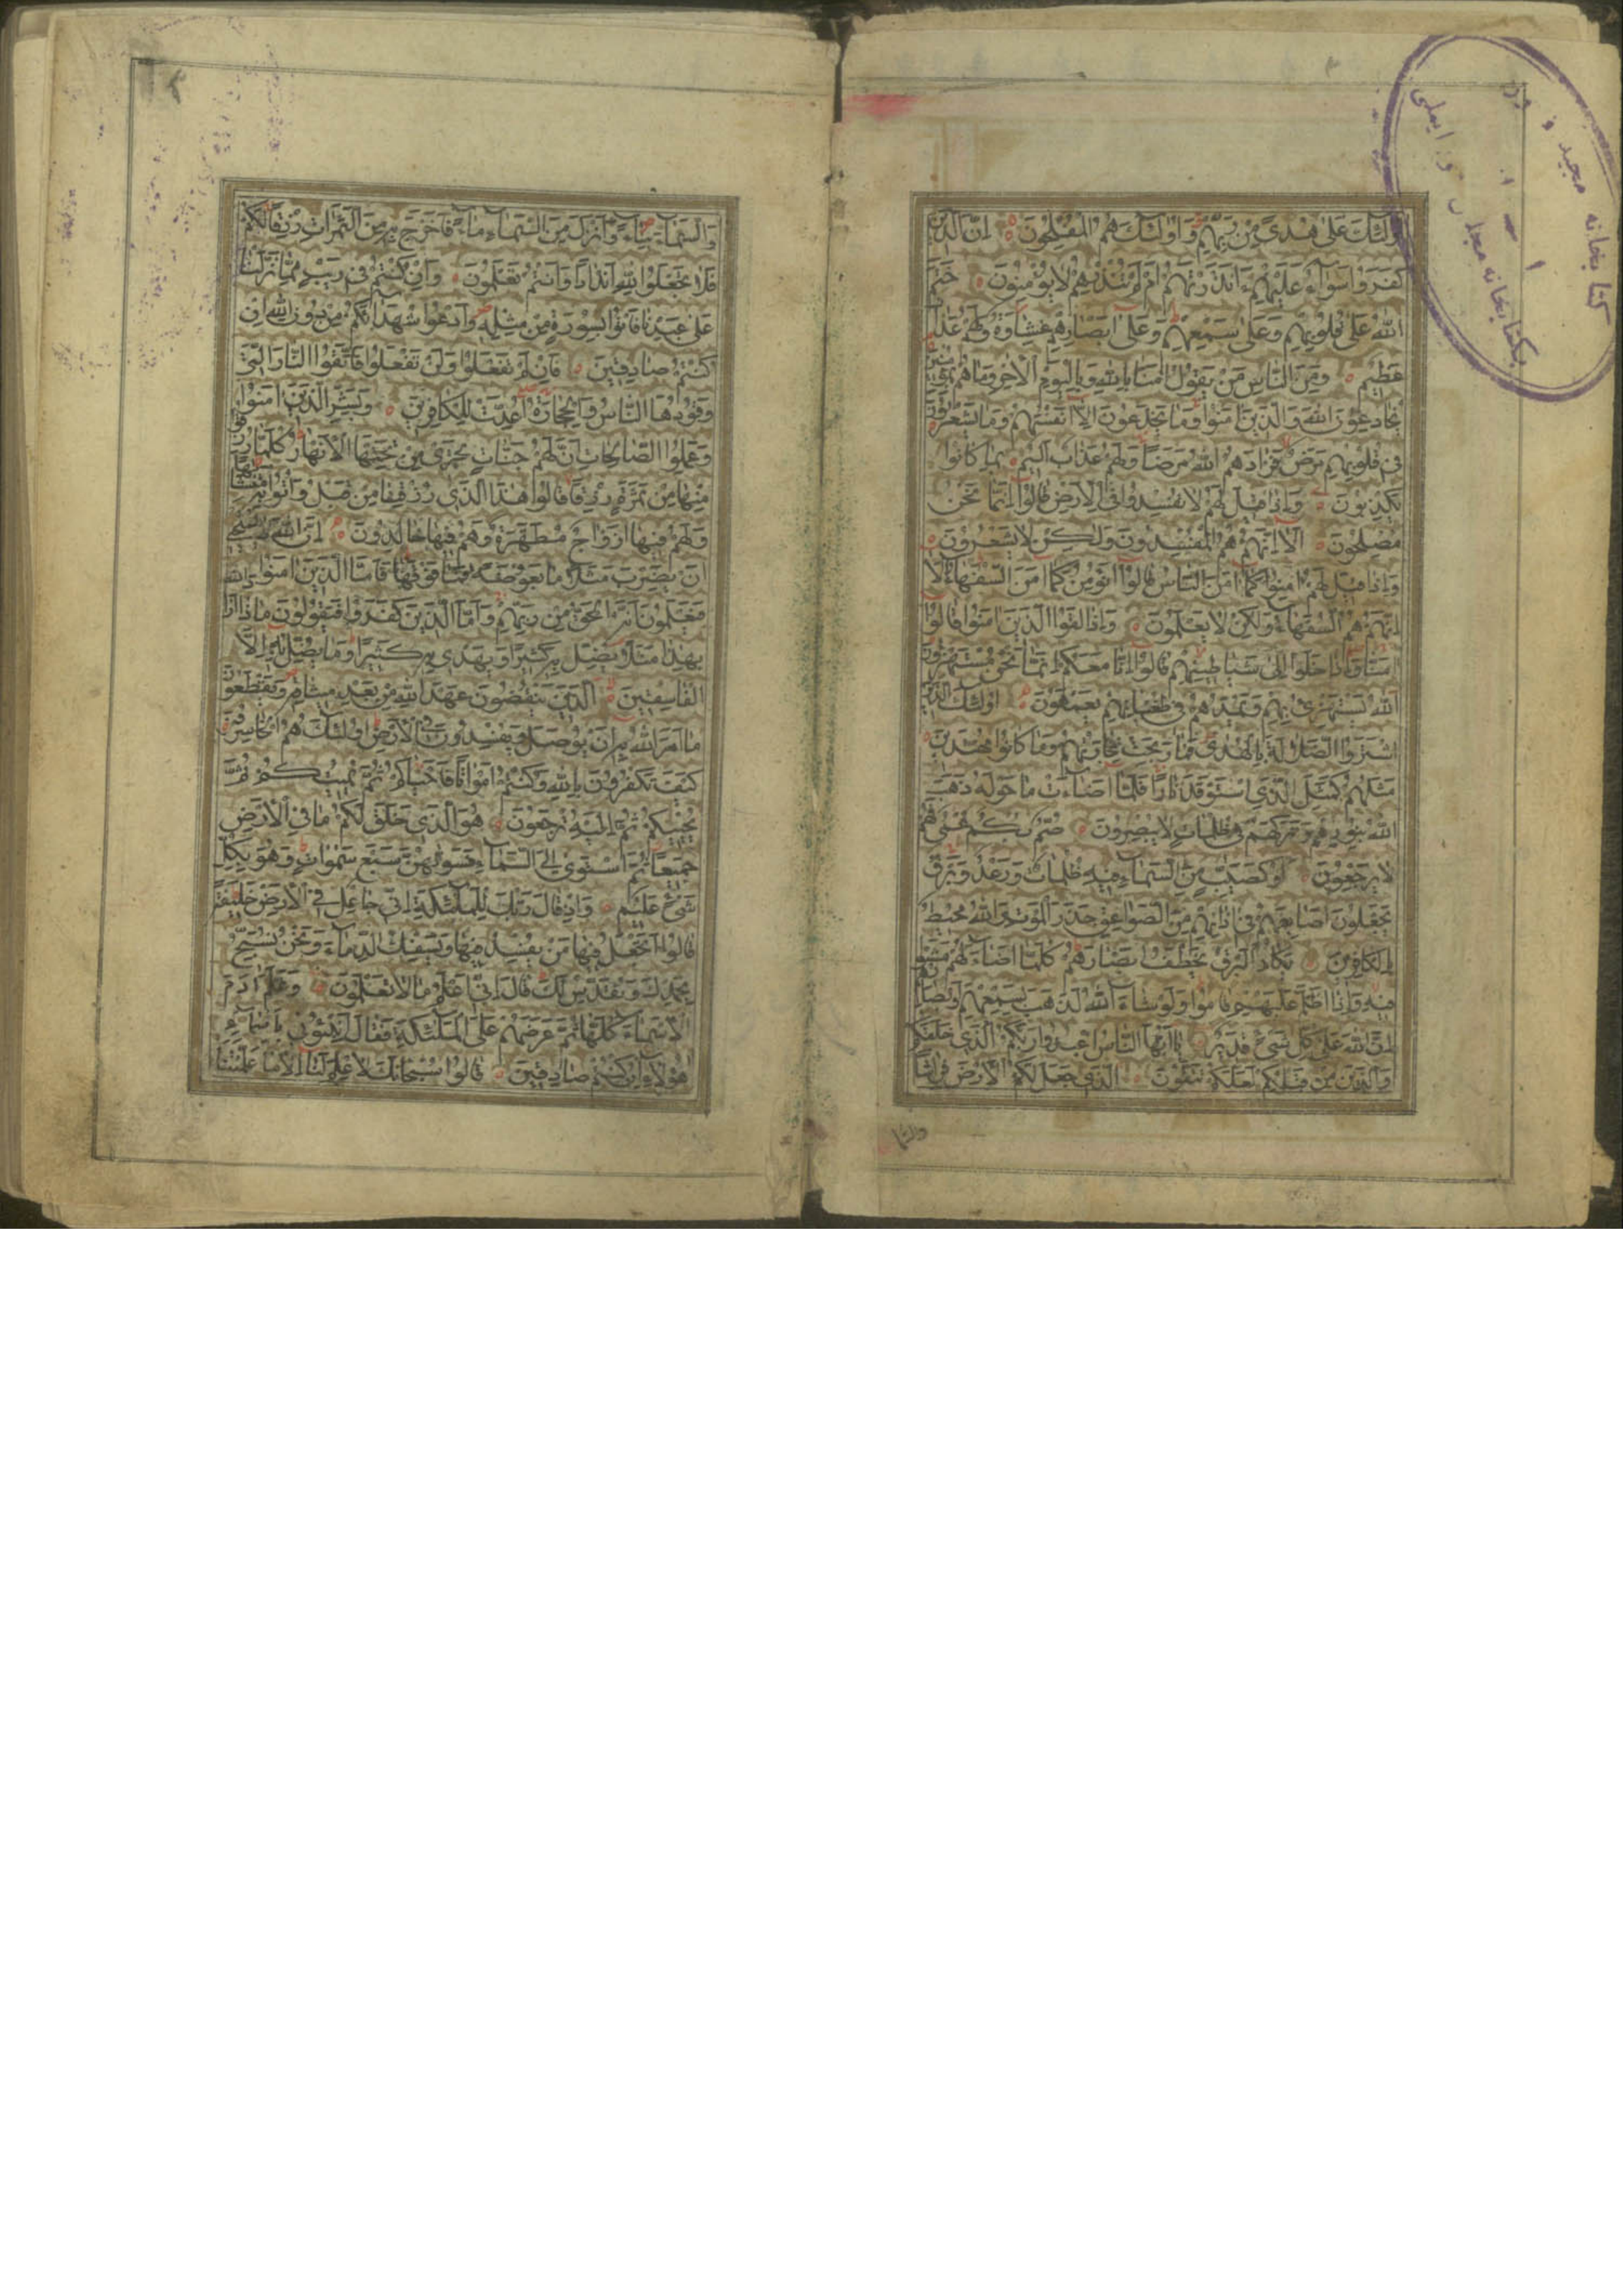 اولئك على هدى من ربهم واولئك هم المفلحون ان الذين
كفروا سواء عليهم ءانذرتهم ام لم تنذرهم لا يؤمنون ختم
الله على قلوبهم وعلى سمعهم وعلى ابصارهم غشاوة ولهم عذاب
عظيم ومن الناس من يقول امنا بالله وباليوم الاخر وما هم بمؤمنين
يخادعون الله والذين امنوا وما يخدعون الا انفسهم وما يشعرون
فى قلوبهم مرض فزادهم الله مرضا ولهم عذاب اليم بما كانوا
يكذبون واذا قيل لهم لا تفسدوا فى الارض قالوا انما نحن
مصلحون الا انهم هم المفسدون ولكن لا يشعرون
واذا قيل لهم امنوا كما امن الناس قالوا انؤمن كما امن السفهاء الا
انهم هم السفهاء ولكن لا يعلمون واذا لقوا الذين امنوا قالوا
امنا واذا خلوا الى شياطينهم قالوا انا معكم انما نحن مستهزؤن
الله يستهزئ بهم ويمدهم فى طغيانهم يعمهون اولئك الذين
اشتروا الضلالة بالهدى فما ربحت تجارتهم وما كانوا مهتدين
مثلهم كمثل الذى استوقد نارا فلما اضاءت ما حوله ذهب
الله بنورهم وتركهم فى ظلمات لا يبصرون صم بكم عمى فهم
لا يرجعون او كصيب من السماء فيه ظلمات ورعد وبرق
يجعلون اصابعهم فى اذانهم من الصواعق حذر الموت والله محيط
بالكافرين يكاد البرق يخطف ابصارهم كلما اضاء لهم مشوا
فيه واذا اظلم عليهم قاموا ولو شاء الله لذهب بسمعهم وابصارهم
ان الله على كل شئ قدير يا ايها الناس اعبدوا ربكم الذى خلقكم
والذين من قبلكم لعلكم تتقون الذى جعل لكم الارض فراشا
والسما
والسماء بناء وانزل من السماء ماء فاخرج به من الثمرات رزقا لكم
فلا تجعلوا لله اندادا وانتم تعلمون وان كنتم فى ريب مما نزلنا
على عبدنا فاتوا بسورة من مثله وادعوا شهداءكم من دون الله ان
كنتم صادقين فان لم تفعلوا ولن تفعلوا فاتقوا النار التى
وقودها الناس والحجارة اعدت للكافرين وبشر الذين امنوا
وعملوا الصالحات ان لهم جنات تجرى من تحتها الانهار كلما رزقوا
منها من ثمرة رزقا قالوا هذا الذى رزقنا من قبل واتوا به متشابها
ولهم فيها ازواج مطهرة وهم فيها خالدون ان الله لا يستحيى
ان يضرب مثلا ما بعوضة فما فوقها فاما الذين امنوا
فيعلمون انه الحق من ربهم واما الذين كفروا فيقولون ماذا اراد الله
بهذا مثلا يضل به كثيرا ويهدى به كثيرا وما يضل به الا
الفاسقين الذين ينقضون عهد الله من بعد ميثاقه ويقطعون
ما امر الله به ان يوصل ويفسدون فى الارض اولئك هم الخاسرون
كيف تكفرون بالله وكنتم امواتا فاحياكم ثم يميتكم ثم
يحييكم ثم اليه ترجعون هو الذى خلق لكم ما فى الارض
جميعا ثم استوى الى السماء فسويهن سبع سموات وهو بكل
شئ عليم واذ قال ربك للملئكة انى جاعل فى الارض خليفة
قالوا اتجعل فيها من يفسد فيها ويسفك الدماء ونحن نسبح
بحمدك ونقدس لك قال انى اعلم ما لا تعلمون وعلم ادم
الاسماء كلها ثم عرضهم على الملئكة فقال انبئونى باسماء
هؤلاء ان كنتم صادقين قالوا سبحانك لا علم لنا الا ما علمتنا